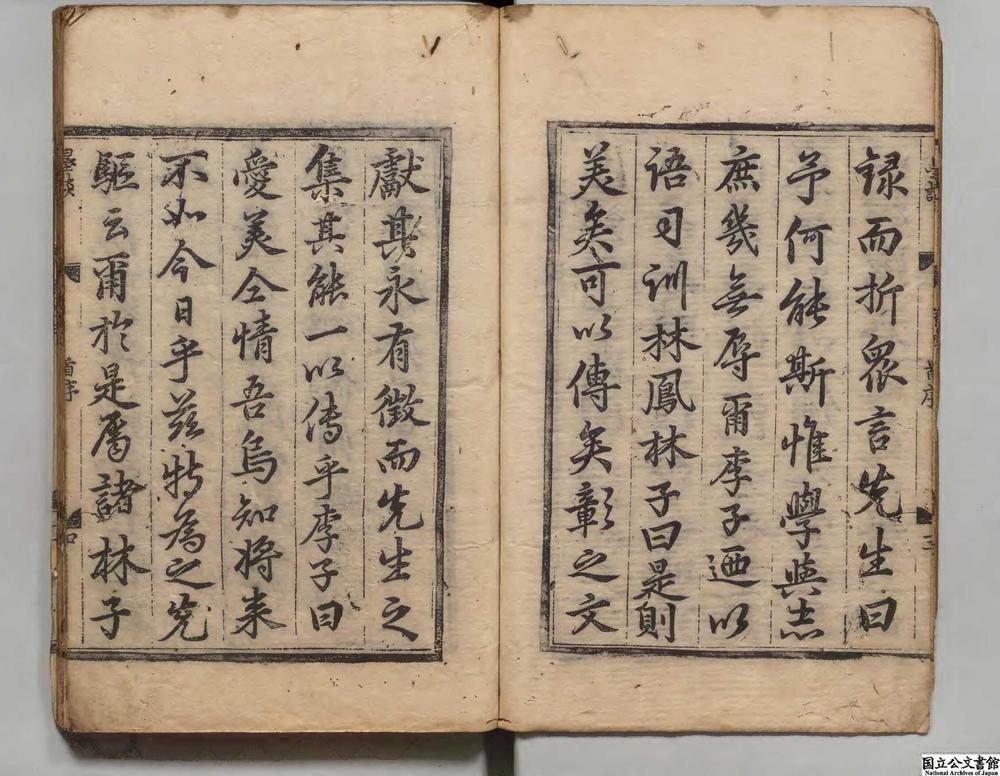 錄而折衆言先生曰
予何能斯惟學與志
庶幾無辱爾李子迺以
語司訓林鳳林子曰是則
美矣可以傳矣彰之文
獻其永有徵而先生之
集其能一以傳乎李子曰
愛美仝情吾烏知將来
不如今日乎茲特為之先
驅云爾於是屬諸林子
首序
三
墨談
首序
四
国立公文書館
National Archives of Japan